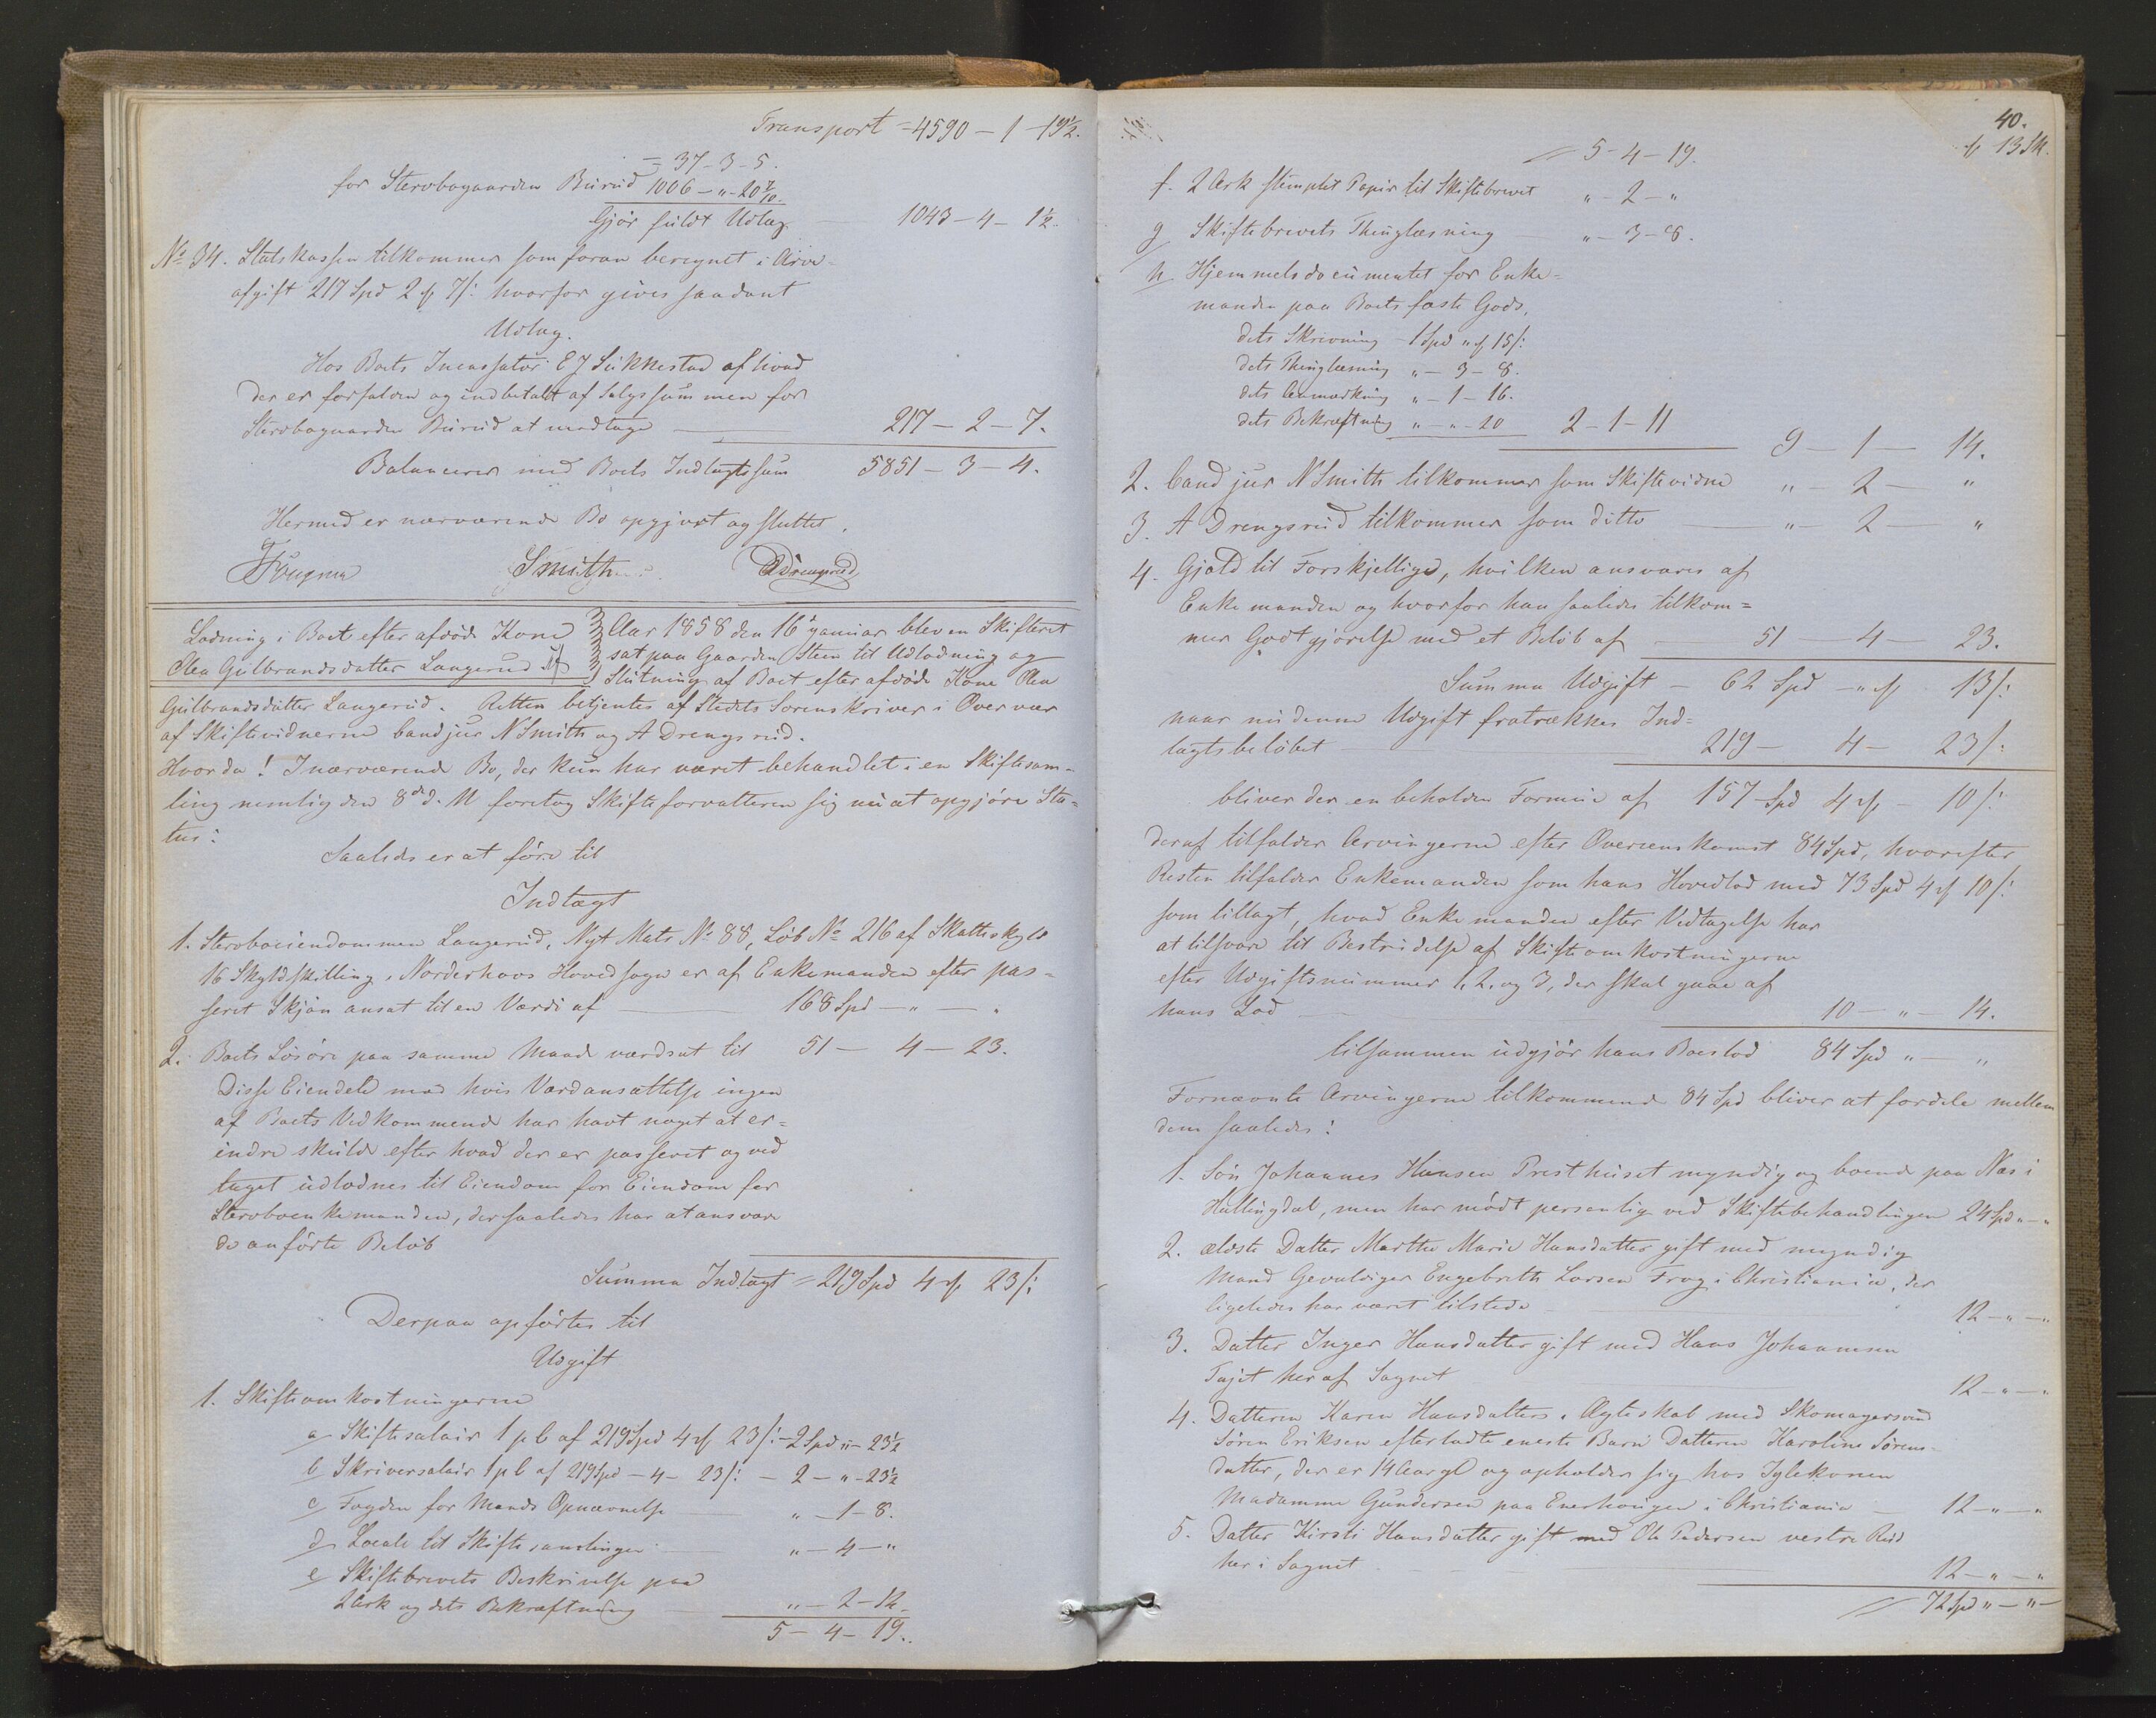 Transport = 4590 – 1 – 19½.
= 37 – 3 – 5.
for Stervbogaarden Burud 1006 – " – 20 7/10.
Gjør fuldt Udlæg 1043 – 4 – 1½.
No 34. Statskassen tilkommer som foran beregnet i Arve-
afgift 217 Spd 2 ₰ 7 /: hvorfor gives saadant
Udlæg.
Hos Boets Incassator E J Sukkestad af hvad
der er forfalden og indbetalt af Salgssummen for
Stervbogaarden Burud at modtage — 217 – 2 – 7.
Balancerer med Boets Indtægtssum 5851 – 3 – 4.
Hermed er nærværende Bo opgjort og sluttet.
Fougner Smith ADrengsrud
Lodning i Boet efter afdøde Kone
Olea Gulbrandsdatter Langerud
Aar 1858 den 16 Januar blev en Skifteret
sat paa Gaarden Steen til Udlodning og
Slutning af Boet efter afdøde Kone Olea
Gulbrandsdatter Langerud. Retten betjentes af Stedets Sorenskriver i Overvær
af Skiftevidnerne Cand jur N Smith og A Drengsrud.
Hvorda! I nærværende Bo, der kun har været behandlet i en Skiftesam-
ling nemlig den 8de d. M foretog Skifteforvalteren sig nu at opgjøre Sta-
tus:
Saaledes er at føre til
Indtægt
1. Stervboeiendommen Langerud, Nyt Mats No 88, Løb No 216 af Skatteskyld
16 Skyldskilling, Norderhovs Hovedsogn er af Enkemanden efter pas-
seret Skjøn ansat til en Værdi af — 168 Spd – " – "
2. Boets Løsøre paa samme Maade værdsat til 51 – 4 – 23.
Disse Eiendele mod hvis Værdansættelse ingen
af Boets Vedkommende har havt noget at er-
indre skulde efter hvad der er passeret og ved
taget udlodnes til Eiendom for Eiendom for
Stervboenkemanden, der saaledes har at ansvare
de anførte Beløb
Summa Indtægt = 219 Spd 4 ₰ 23 /:
Derpaa opførtes til
Udgift
1. Skifteomkostningerne
a Skiftesalair 1 p C af 219 Spd 4 ₰ 23 /: – 2 Spd " – 23½
b Skriversalair 1 p C af 219 Spd – 4 – 23 /: – 2 – " – 23½
c Fogden for Mænds Opnævnelse — " – 1 – 8.
d Locale til Skiftesamlinger — " – 4 – "
e Skiftebrevets Beskrivelse paa
2 Ark og dets Bekræftning — " – 2 – 12.
5 – 4 – 19.
40.
₰ 13 Sk.
= 5 – 4 – 19.
f. 2 Ark stemplet Papir til Skiftebrevet " – 2 – "
g Skiftebrevets Thinglæsning — " – 3 – 8.
h Hjemmelsdocumentet for Enke-
manden paa Boets faste Gods,
dets Skrivning – 1 Spd " ₰ 15 /:
dets Thinglæsning " – 3 – 8.
dets Anmærkning " – 1 – 16.
dets Bekræftning " – " – 20 2 – 1 – 11
9 – 1 – 14.
2. Cand jur N Smith tilkommer som Skiftevidne " – 2 – "
3. A Drengsrud tilkommer som ditto — " – 2 – "
4. Gjæld til Forskjellige, hvilken ansvares af
Enkemanden og hvorfor han saaledes tilkom-
mer Godtgjørelse med et Beløb af — 51 – 4 – 23.
Summa Udgift – 62 Spd – " ₰ 13 /:
naar nu denne Udgift fratrækkes Ind-
tægtsbeløbet — 219 – 4 – 23 /:
bliver der en beholden Formue af 157 Spd 4 ₰ – 10 /:
deraf tilfalder Arvingerne efter Overenskomst 84 Spd, hvorefter
Resten tilfalder Enkemanden som hans Hovedlod med 73 Spd 4 ₰ 10 /:
som tillagt, hvad Enkemanden efter Vedtagelse har
at tilsvare til Bestridelse af Skifteomkostningerne
efter Udgiftsnummer 1, 2, og 3, der skal gaae af
hans Lod — 10 – " – 14.
tilsammen udgjør hans Boeslod 84 Spd " – "
Fornævnte Arvingerne tilkommende 84 Spd bliver at fordele mellem
dem saaledes:
1. Søn Johannes Hansen Presthuset myndig og boende paa Næs i
Hallingdal, men har mødt personlig ved Skiftebehandlingen 24 Spd " – "
2. ældste Datter Marthe Marie Hansdatter gift med myndig
Mand Gevaldiger Engebreth Larsen Frog i Christiania, der
ligeledes har været tilstede — 12 – " – "
3. Datter Inger Hansdatter gift med Hans Johannesen
Tajet her af Sognet — 12 – " – "
4. Datteren Karen Hansdatters i Ægteskab med Skomagersvend
Søren Eriksen efterladte eneste Barn Datteren Karoline Sørens-
datter, der er 14 Aar gl og opholder sig hos Iglekonen
Madamme Gundersen paa Enerhougen i Christiania — 12 – " – "
5. Datter Kirsti Hansdatter gift med Ole Pedersen vestre Rud
her i Sognet — 12 – " – "
= 72 Spd " – " –